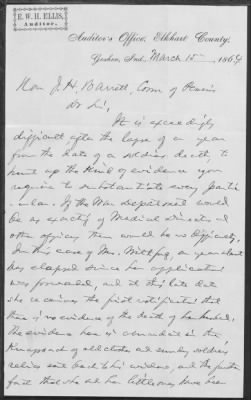 E. W. H. ELLIS,
Auditor.
Auditor's Office, Elkhart County.
Goshen, Ind. March 15 1864
Hon J. H. Barrett, Com of Pensions
Dr Sir,
It is exceedingly
difficult after the lapse of a year
from the date of a soldiers death, to
hunt up the kind of evidence you
require to substantiate every parti-
cular. If the War department would
be as exacting of Medical Directors and
other officers there would be no difficulty.
In this case of Mrs. , an year about
has elapsed since her application
was forwarded, and at this late date
she receives the first notification that
there is no evidence of the death of her husband.
The evidence here is abundant in the
Knapsack of old clothes and sundry soldiers
relics sent back to his widow, and the further
fact that she and her little ones have been